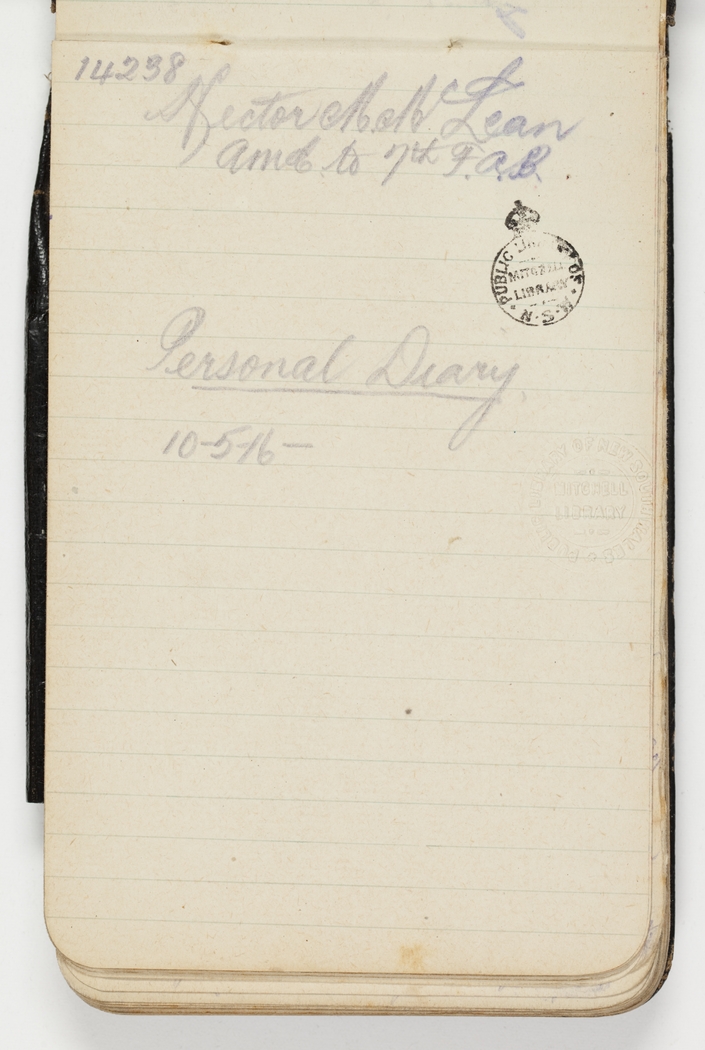 14238
Hector McN Lean
amd. to 7th F.A.B.
PUBLIC LIBRARY OF N.S.W
MITCHELL
LIBRARY
Personal Diary
10-5-16 —
PUBLIC LIBRARY OF NEW SOUTH WALES
MITCHELL
LIBRARY